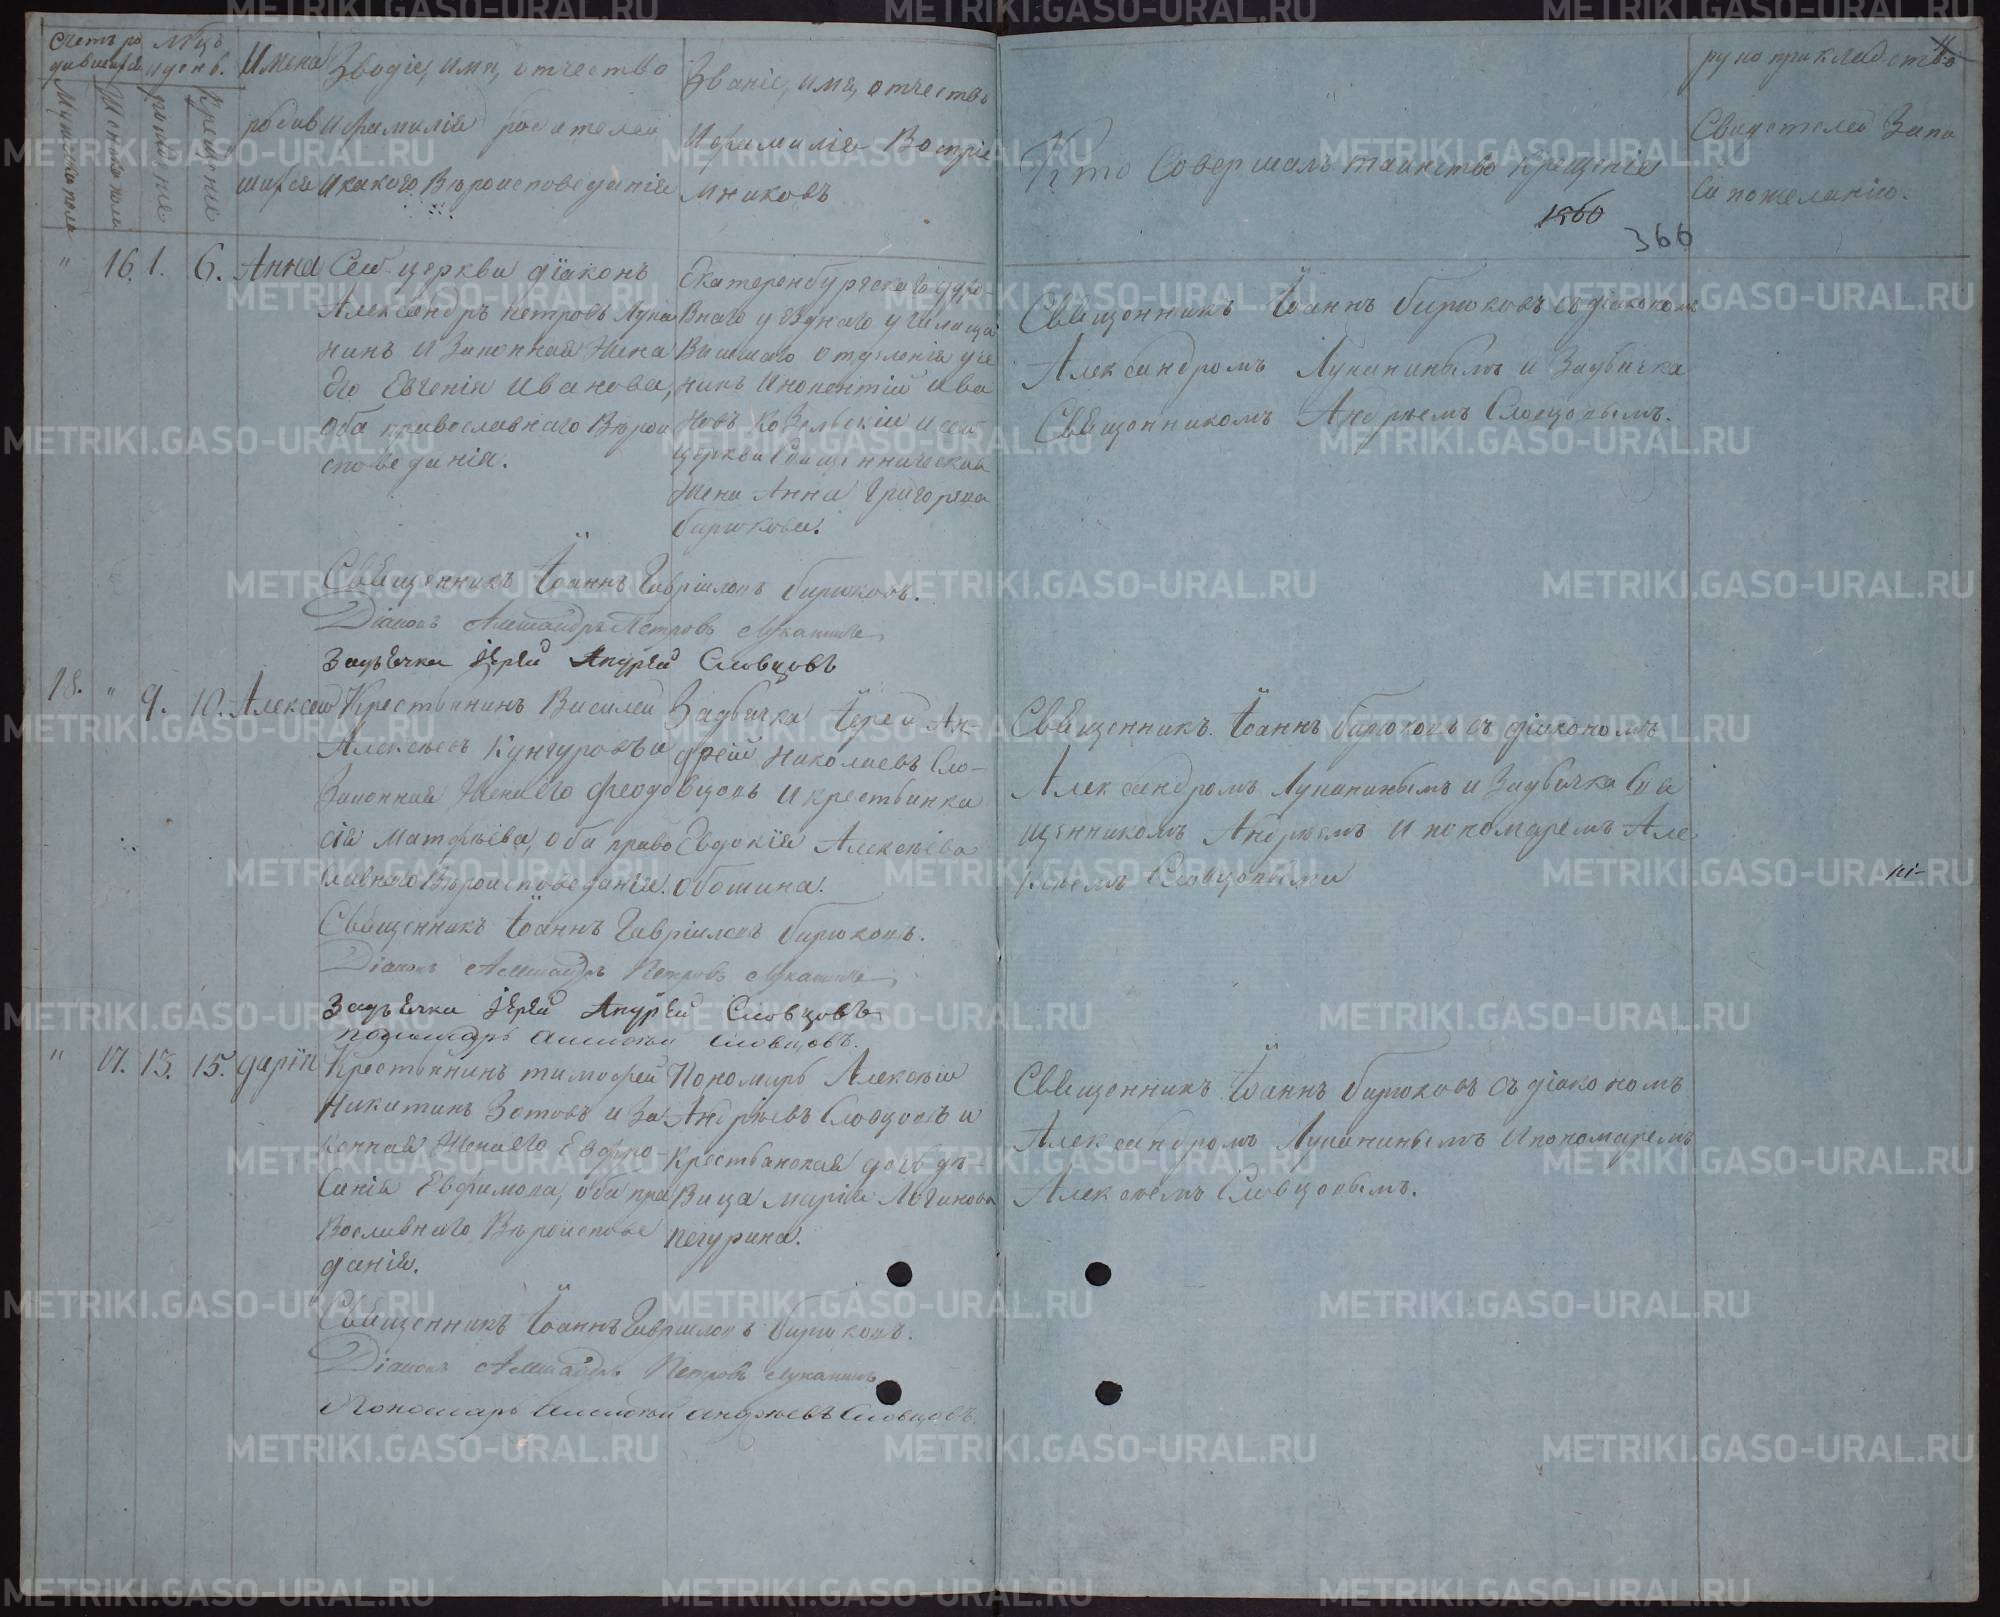 Счетъ ро
дившихся
Мужеска пола
Женска пола
Мѣцъ
и день.
рожденіе
Крещеніе
Имена
родив
шихся
Званіе, имя, отчество
и фамилія родителей
и какого вѣроисповеданія
Званіе, имя, отчество
и фамилія Воспріе
мниковъ
Кто Совершалъ таинство Крещенія
1860
366
рукоприкладство
Свидетелей Запи
си по желанію.
" 16. 1. 6. Анна
Сей церкви діаконъ
Александръ Петровъ Лука
нинъ и Законная Жена
Его Евгенія Иванова,
Оба православнаго Вѣрои
споведанія.
Екатеренбургскаго духо
Внаго уѣзднаго училища
Вышшаго отделенія уче
никъ Инокентій Ива
новъ Козельскій и сей
церкви Священническая
Жена Анна Григорьева
бирюкова.
Священникъ Іоаннъ бирюковъ съ діакономъ
Александромъ Луканинымъ и Задъячка
Священникомъ Андреемъ Словцовымъ.
Священникъ Іоаннъ Гавріиловъ бирюковъ.
Діаконъ Александръ Петровъ Луканинъ
Задъячка Іерей Андрей Словцовъ
18. " 9. 10. Алексей
Крестьянинъ Василей
Алексеевъ Кунгуровъ и
Законная Жена Его Феодо
сія Матфеева, оба право
славнаго Вѣроисповеданія.
Задъячка Іерей Ан-
дрей Николаевъ Сло-
вцовъ и крестьянка
Евдокія Алексеева
Обошина.
Священникъ Іоаннъ бирюковъ съ діакономъ
Александромъ Луканинымъ и Задъячка Свя
щенникомъ Андреемъ и пономаремъ Але
ксеемъ Словцовыми
Священникъ Іоаннъ Гавріиловъ бирюковъ.
Діаконъ Александръ Петровъ Луканинъ
Задъячка Іерей Андрей Словцовъ
пономарь Алексей Словцовъ.
" 17. 13. 15. Дарія
Крестьянинъ Тимофей
Никитинъ Зотовъ и За
конная Жена Его Евфро-
синія Евфимова, оба пра
вославнаго Вѣроиспове
данія.
Пономарь Алексей
Андреевъ Словцовъ и
Крестьянская дочь дѣ-
вица Марія Логинова
Печурина.
Священникъ Іоаннъ бирюковъ съ діакономъ
Александромъ Луканинымъ и пономаремъ
Алексеемъ Словцовымъ.
Священникъ Іоаннъ Гавріиловъ бирюковъ.
Діаконъ Александръ Петровъ Луканинъ
Пономарь Алексей Андреевъ Словцовъ.